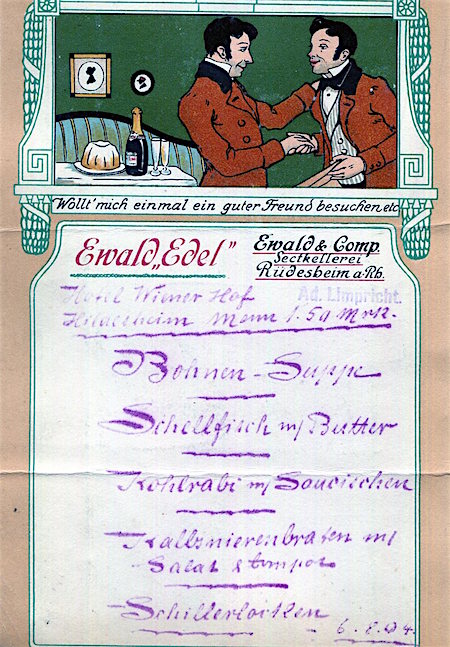 Wollt' mich einmal ein guter Freund besuchen etc
Ewald „Edel"
Ewald & Comp.
Sectkellerei
Rüdesheim a. Rh.
Hotel Wiener Hof
Ad. Limpricht.
Hildesheim Menu 1.50 Mrk.
Bohnen-Suppe
Schellfisch m/ Butter
Kohlrabi m/ Saucischen
Kalbsnierenbraten m/
Salat & Compot
Schillerlocken
6.8.04.